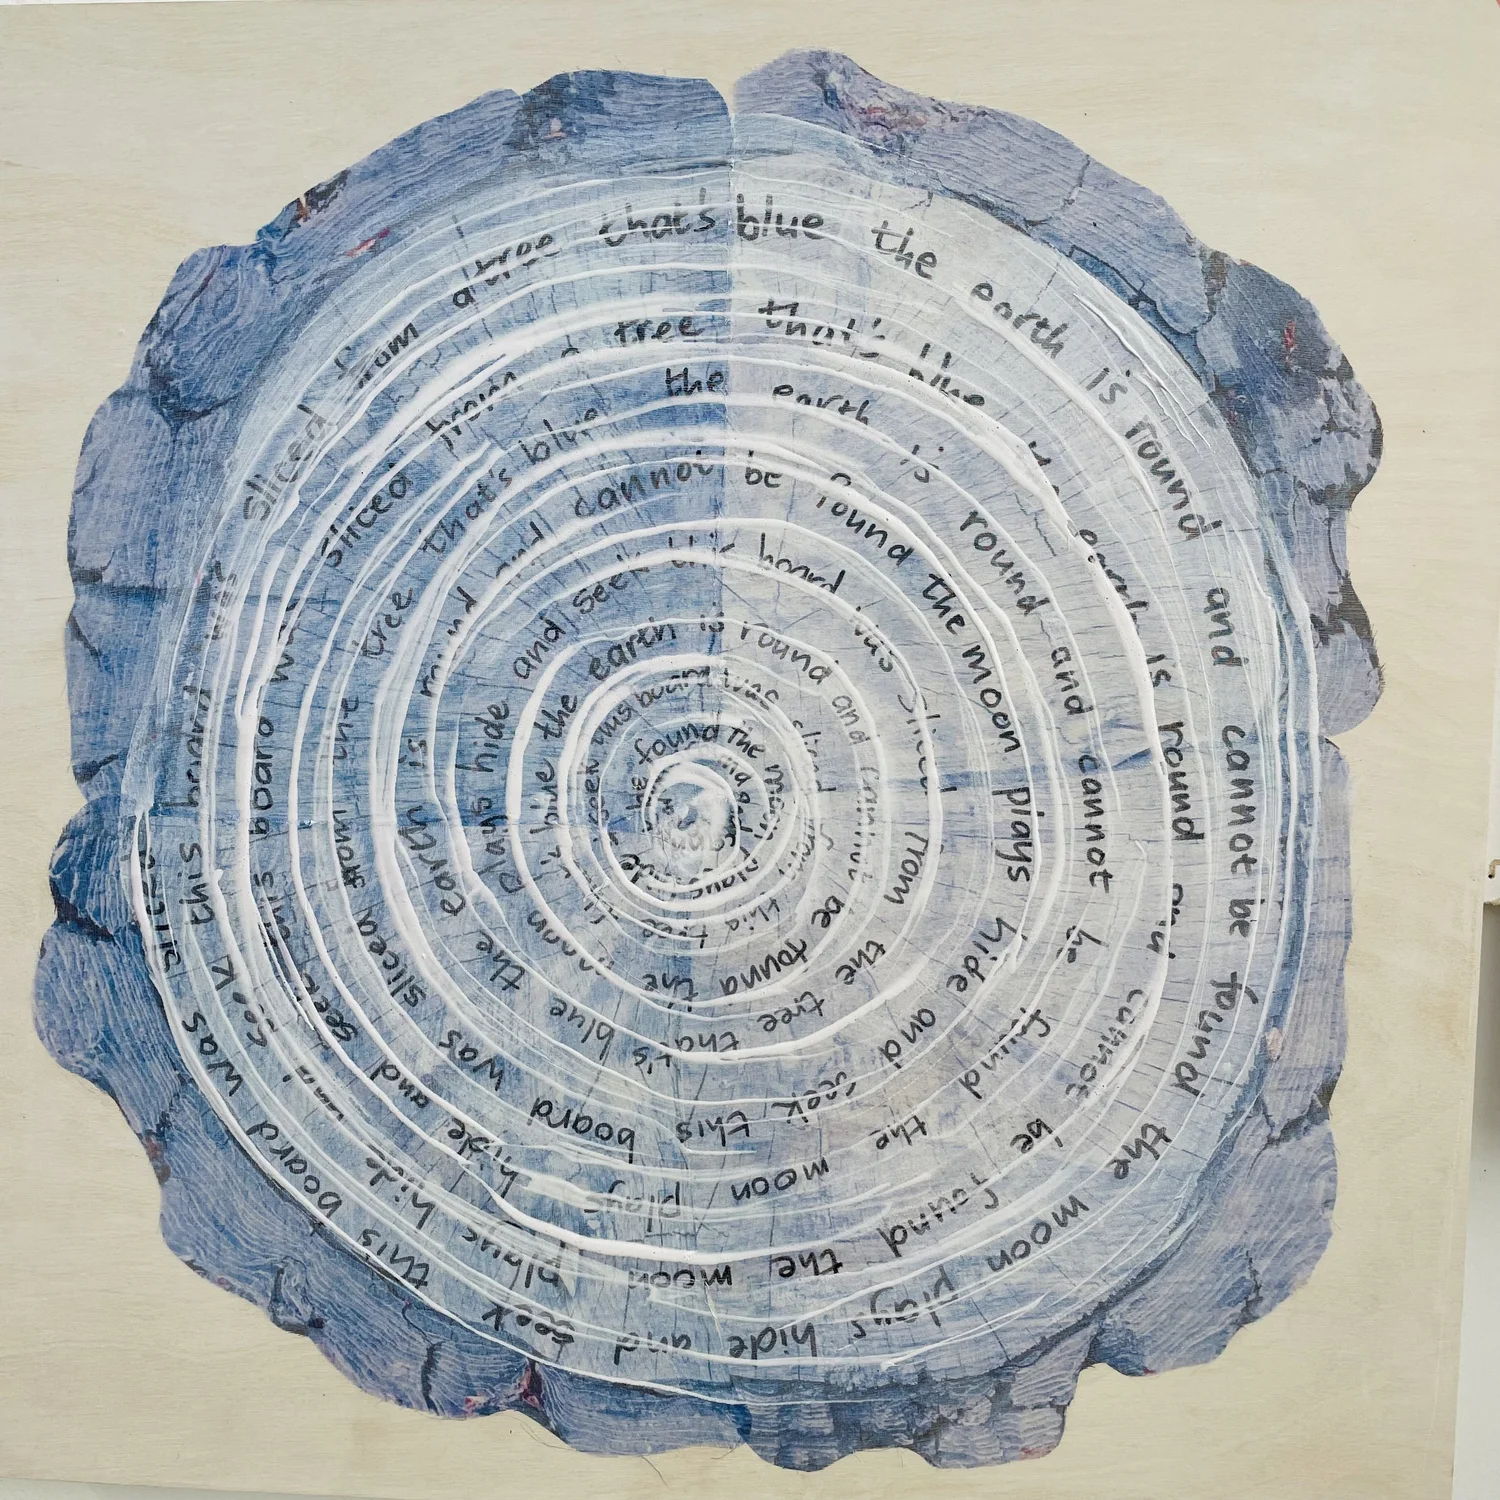 be found the moon plays hide
seek this board was sliced from this tree
that's blue the earth is round and cannot be found the
moon plays hide and seek this board was sliced from the tree that's
blue the earth is round and cannot be found the moon plays hide and seek this board was
sliced from the tree that's blue the earth is round and cannot be found the moon plays hide and
seek this board was sliced from a tree that's blue the earth is round and cannot be found the moon plays hide and
seek this board was sliced from a tree that's blue the earth is round and cannot be found the moon plays hide and seek
this board was sliced